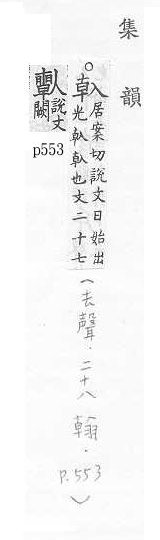 集韻
○倝居案切說文日始出
光倝倝也文二十七
說文
闕
p553
(去聲.二十八翰.P.553)